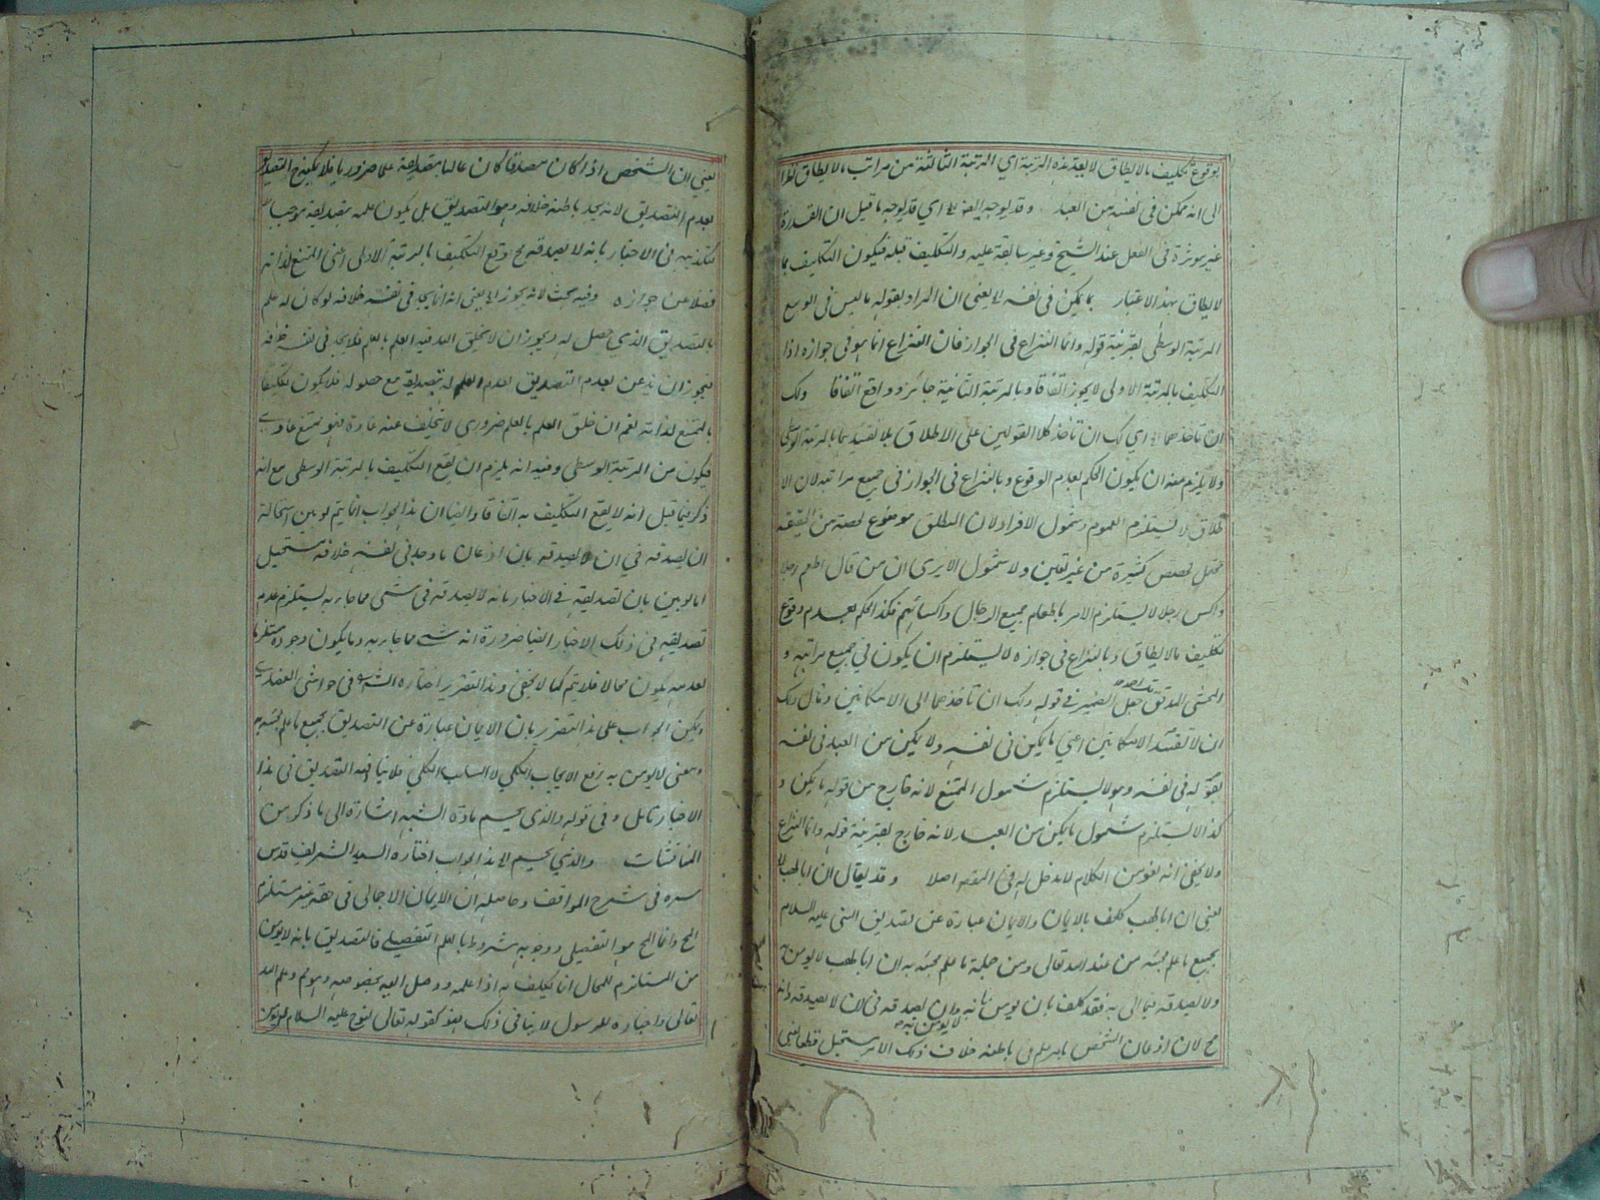 بوقوع تكليف ما لا يطاق لا بعد هذه المرتبة اي المرتبة الثالثة من مراتب ما لا يطاق نظرا
الى انه ممكن في نفسه من العبد وقد يوجه الخ اي قد يوجه ما قيل ان القدرة
غير موثرة في الفعل عند الشيخ وغير سابقة عليه والتكليف قبله فيكون التكليف بما
لا يطاق بهذا الاعتبار بما يمكن في نفسه الخ يعني ان المراد بقوله ما ليس في الوسع
المرتبة الوسطى بقرينة قوله وانما النزاع في الجواز فان النزاع انما هو في جوازه اذا
التكليف بالمرتبة الاولى لا يجوز اتفاقا وبالمرتبة الثانية جائز وواقع اتفاقا ولك
ان تاخذهما الخ اي لك ان تاخذ كلا القولين على الاطلاق بلا تقييدهما بالمرتبة الوسطى
ولا يلزم منه ان يكون الحكم بعدم الوقوع وبالنزاع في الجواز في جميع مراتبه لان الا
طلاق لا يستلزم العموم وشمول الافراد لان المطلق موضوع لحصة من الحقيقة
محتمل لحصص كثيرة من غير تعين ولا شمول الا يرى ان من قال اطعم رجلا
واكس رجلا لا يستلزم الامر باطعام جميع الرجال واكسائهم فكذا الحكم بعدم وقوع
تكليف ما لا يطاق وبالنزاع في جوازه لا يستلزم ان يكون في جميع مراتبه و
المحشي المدقق جعل الضمير في قوله ولك ان تاخذهما الى الامكانين وقال ولك
ان لا تقيد الامكانين اعني ما يمكن في نفسه ولا يمكن من العبد في نفسه
بقوله في نفسه وهو لا يستلزم شمول الممتنع لانه خارج من قوله ما يمكن و
كذا لا يستلزم شمول ما يمكن من العبد لانه خارج بقرينة قوله وانما النزاع
ولا يخفى انه لغو من الكلام لا مدخل له في المقصد اصلا وقد يقال ان ابا لهب الخ
يعني ان ابا لهب كلف بالايمان والايمان عبارة عن تصديق النبي عليه السلام
بجميع ما علم مجيئه من عند الله تعالى ومن جملة ما علم مجيئه به ان ابا لهب لا يومن
ولا يصدقه فيما اتى به فقد كلف بان يومن بانه لا يومن به وان يصدقه في ان لا يصدقه وانه
مح لان اذعان الشخص بامر علم في باطنه خلاف ذلك الامر مستحيل قطعا يعني
يعني ان الشخص اذا كان مصدقا كان عالما بتصديقه علما ضروريا فلا يمكنه التصديق
بعدم التصديق لانه يجد باطنه خلافه وهو التصديق بل يكون علمه بتصديقه موجبا
لتكذيبه في الاخبار بانه لا يصدقه فح وقع التكليف بالمرتبة الاولى اعني الممتنع لذاته
فضلا عن جوازه وفيه بحث لانه يجوز الخ يعني انه انما يجد في نفسه خلافه لو كان له علم
بالتصديق الذي حصل له ويجوز ان لا يخلق الله فيه العلم بالعلم فلا يجد في نفسه خلافه
فيجوز ان يذعن بعدم التصديق لعدم العلم له بتصديقه مع حصوله فلا يكون تكليفا
بالممتنع لذاته نعم ان خلق العلم بالعلم ضروري لا يتخلف عنه عادة فهو ممتنع عادي
فيكون من المرتبة الوسطى وفيه انه يلزم ان يقع التكليف بالمرتبة الوسطى مع انه
ذكر فيما قبل انه لا يقع التكليف به اتفاقا وايضا ان هذا الجواب انما يتم لو بين استحالة
ان يصدقه في ان لا يصدقه بان اذعان ما وجد في نفسه خلافه مستحيل
اما لو بين بان تصديقه في الاخبار بانه لا يصدقه في شيء مما جاء به يستلزم عدم
تصديقه في ذلك الاخبار ايضا ضرورة انه شيء مما جاء به وما يكون وجوده مستلزما
لعدمه يكون محالا فلا يتم كما لا يخفى وهذا التقرير اختاره الشريف في حواشي العضدي
ويمكن الجواب على هذا التقرير بان الايمان عبارة عن التصديق بجميع ما علم مجيئه
ومعنى لا يومن به رفع الايجاب الكلي لا السلب الكلي فلا ينافيه التصديق في هذا
الاخبار تامل وفي قوله والذي يحسم مادة الشبهة اشارة الى ما ذكر من
المناقشات والذي يحسم الخ هذا الجواب اختاره السيد الشريف قدس
سره في شرح المواقف وحاصله ان الايمان الاجمالي في حقه غير مستلزم
المح وانما المح هو التفصيلي ووجوبه مشروط بالعلم التفصيلي فالتصديق بانه لا يومن
من المستلزم للمحال انما يكلف به اذا علمه ووصل اليه بخصوصه وهو مم وعلم الله
تعالى واخباره للرسول لا ينافي ذلك فهو كقوله تعالى لنوح عليه السلام لن يومن